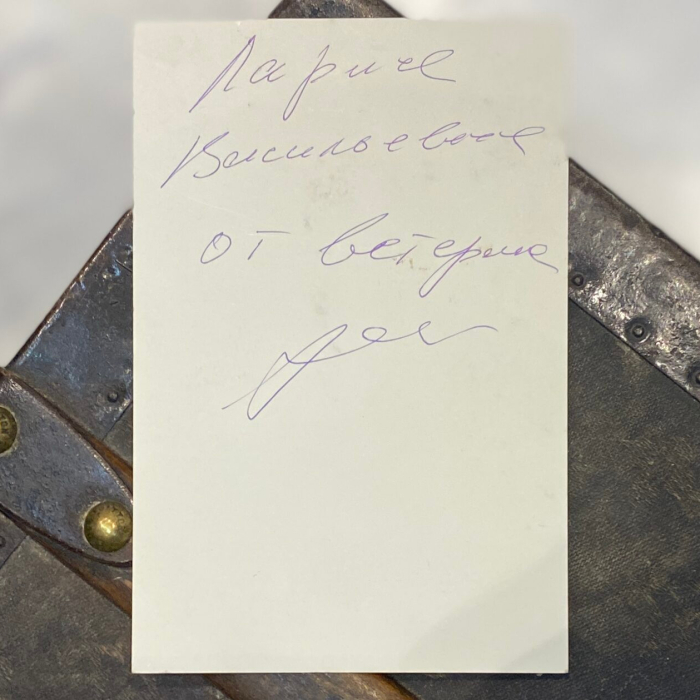 Ларисе
Васильевне
от ветерана